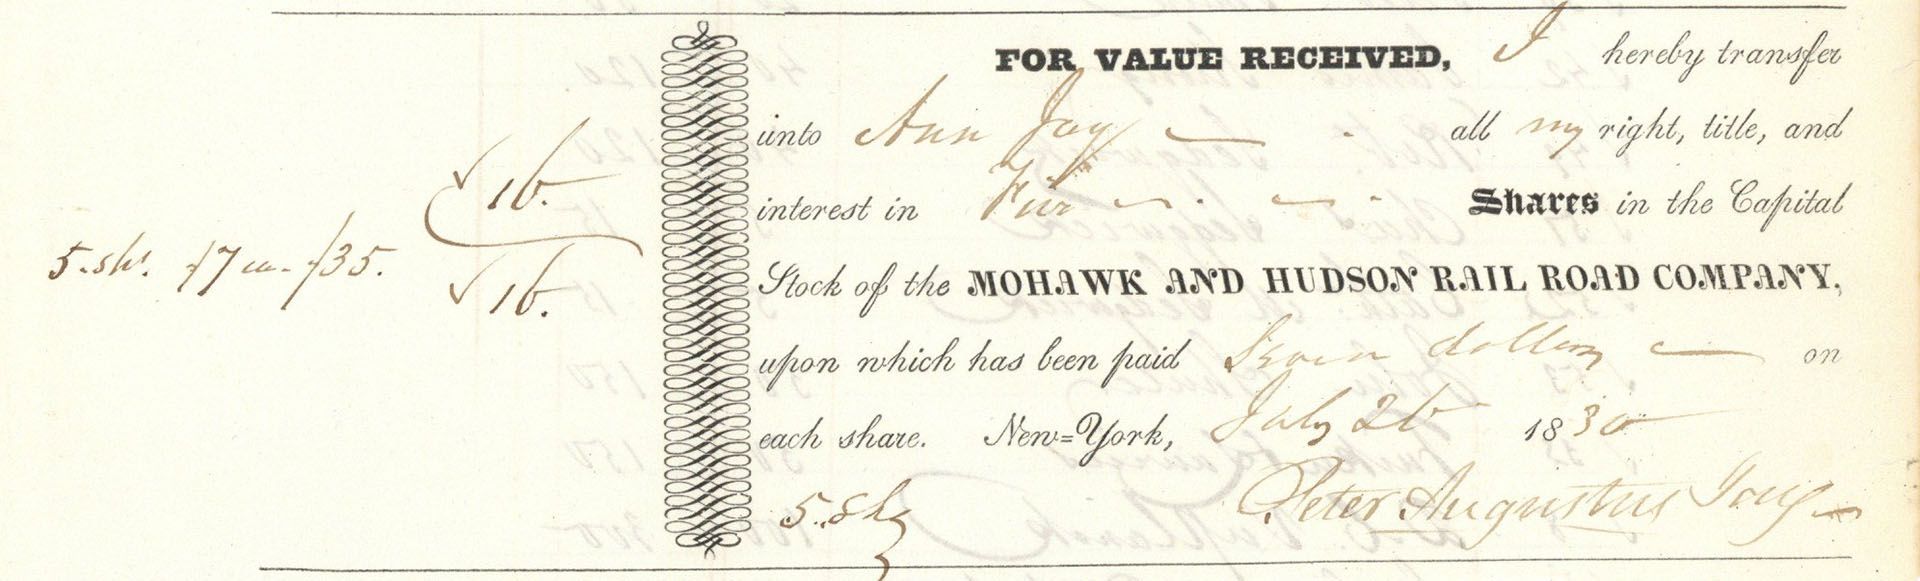 FOR VALUE RECEIVED, I hereby transfer
unto Ann Jay all my right, title, and
interest in Five Shares in the Capital
Stock of the MOHAWK AND HUDSON RAIL ROAD COMPANY,
upon which has been paid Seven dollars on
each share. New=York, July 26 1830
5. Shs
Peter Augustus Jay
16.
5. shs. 7 35.
16.